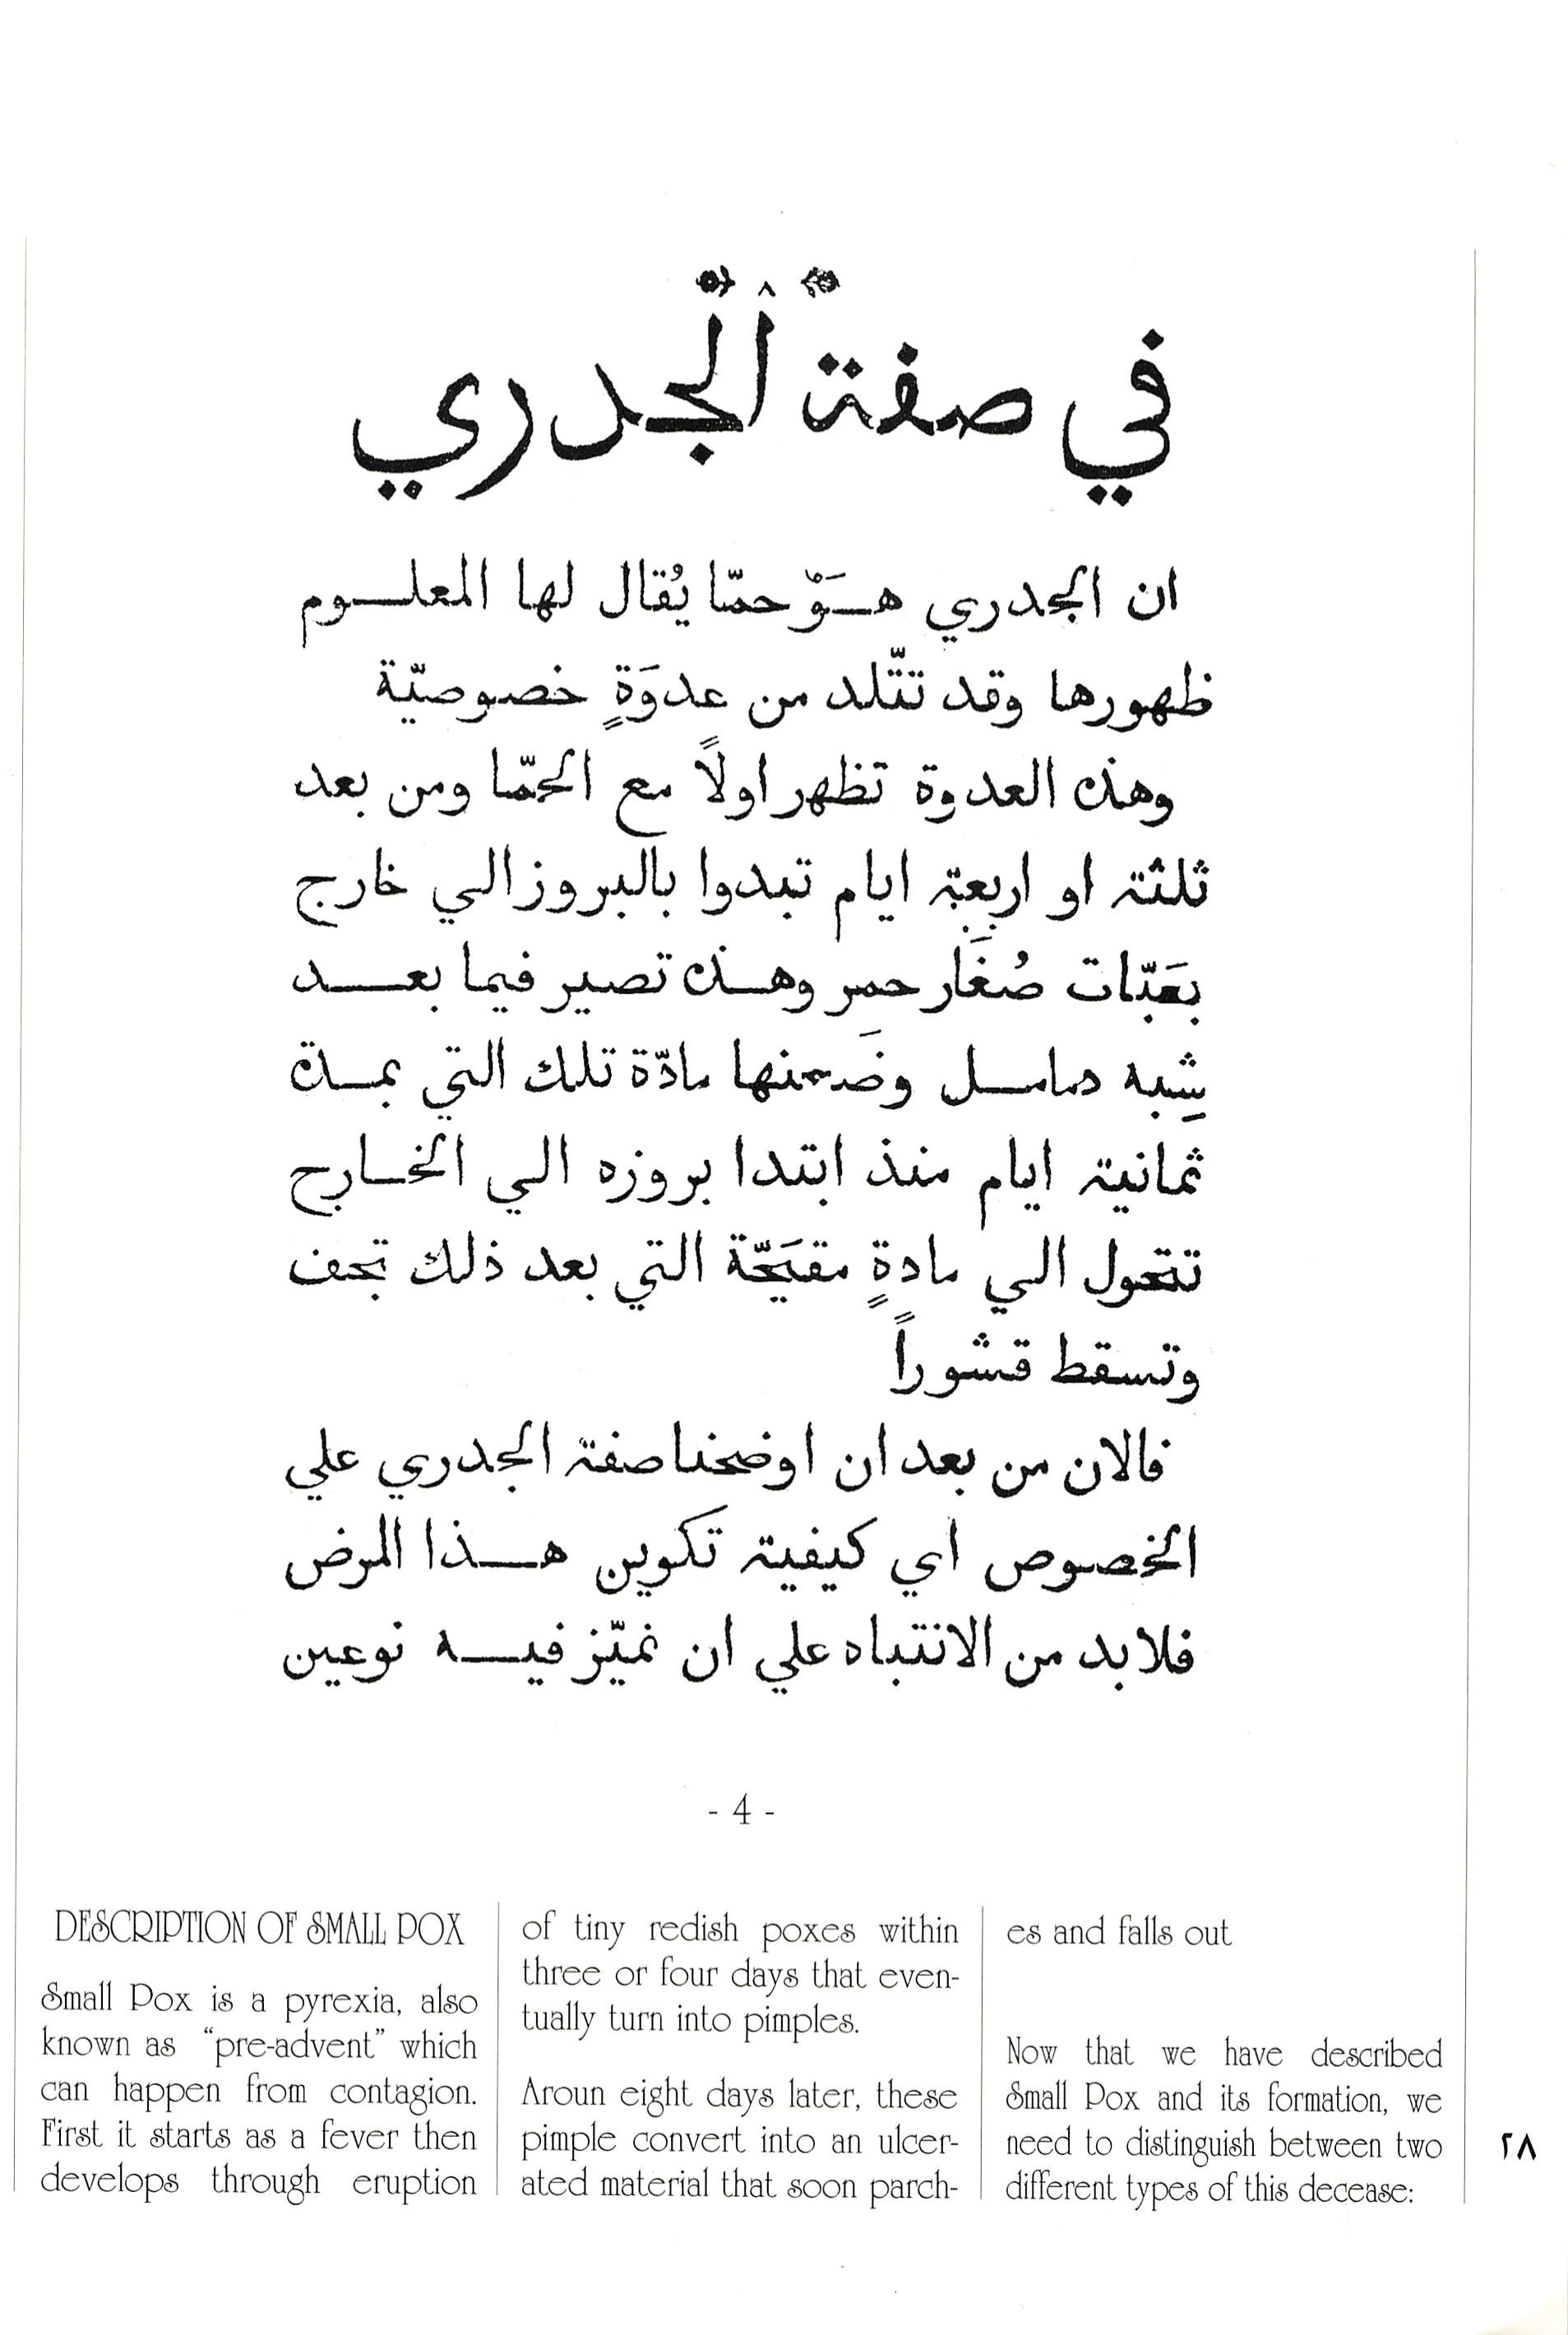 في صفة الجدري
ان الجدري هَوَ حمّا يُقال لها المعلوم
ظهورها وقد تتّلد من عدوَةٍ خصوصيّة
وهذه العدوة تظهر اولاً مع الحمّا ومن بعد
ثلثة او اربعة ايام تبدوا بالبروز الي خارج
بعَبّات صُغَار حمر وهذه تصير فيما بعد
شِبه دمامل وضَمنها مادّة تلك التي بمدة
ثمانية ايام منذ ابتدا بروزه الي الخارج
تتحول الي مادةٍ مقيَحّة التي بعد ذلك تجف
وتسقط قشوراً
فالان من بعد ان اوضحنا صفة الجدري علي
الخصوص اي كيفية تكوين هذا المرض
فلا بد من الانتباه علي ان نميّز فيه نوعين
- 4 -
DESCRIPTION OF SMALL POX
Small Pox is a pyrexia, also
known as “pre-advent” which
can happen from contagion.
First it starts as a fever then
develops through eruption
of tiny redish poxes within
three or four days that even-
tually turn into pimples.
Aroun eight days later, these
pimple convert into an ulcer-
ated material that soon parch-
es and falls out
Now that we have described
Small Pox and its formation, we
need to distinguish between two
different types of this decease:
٢٨